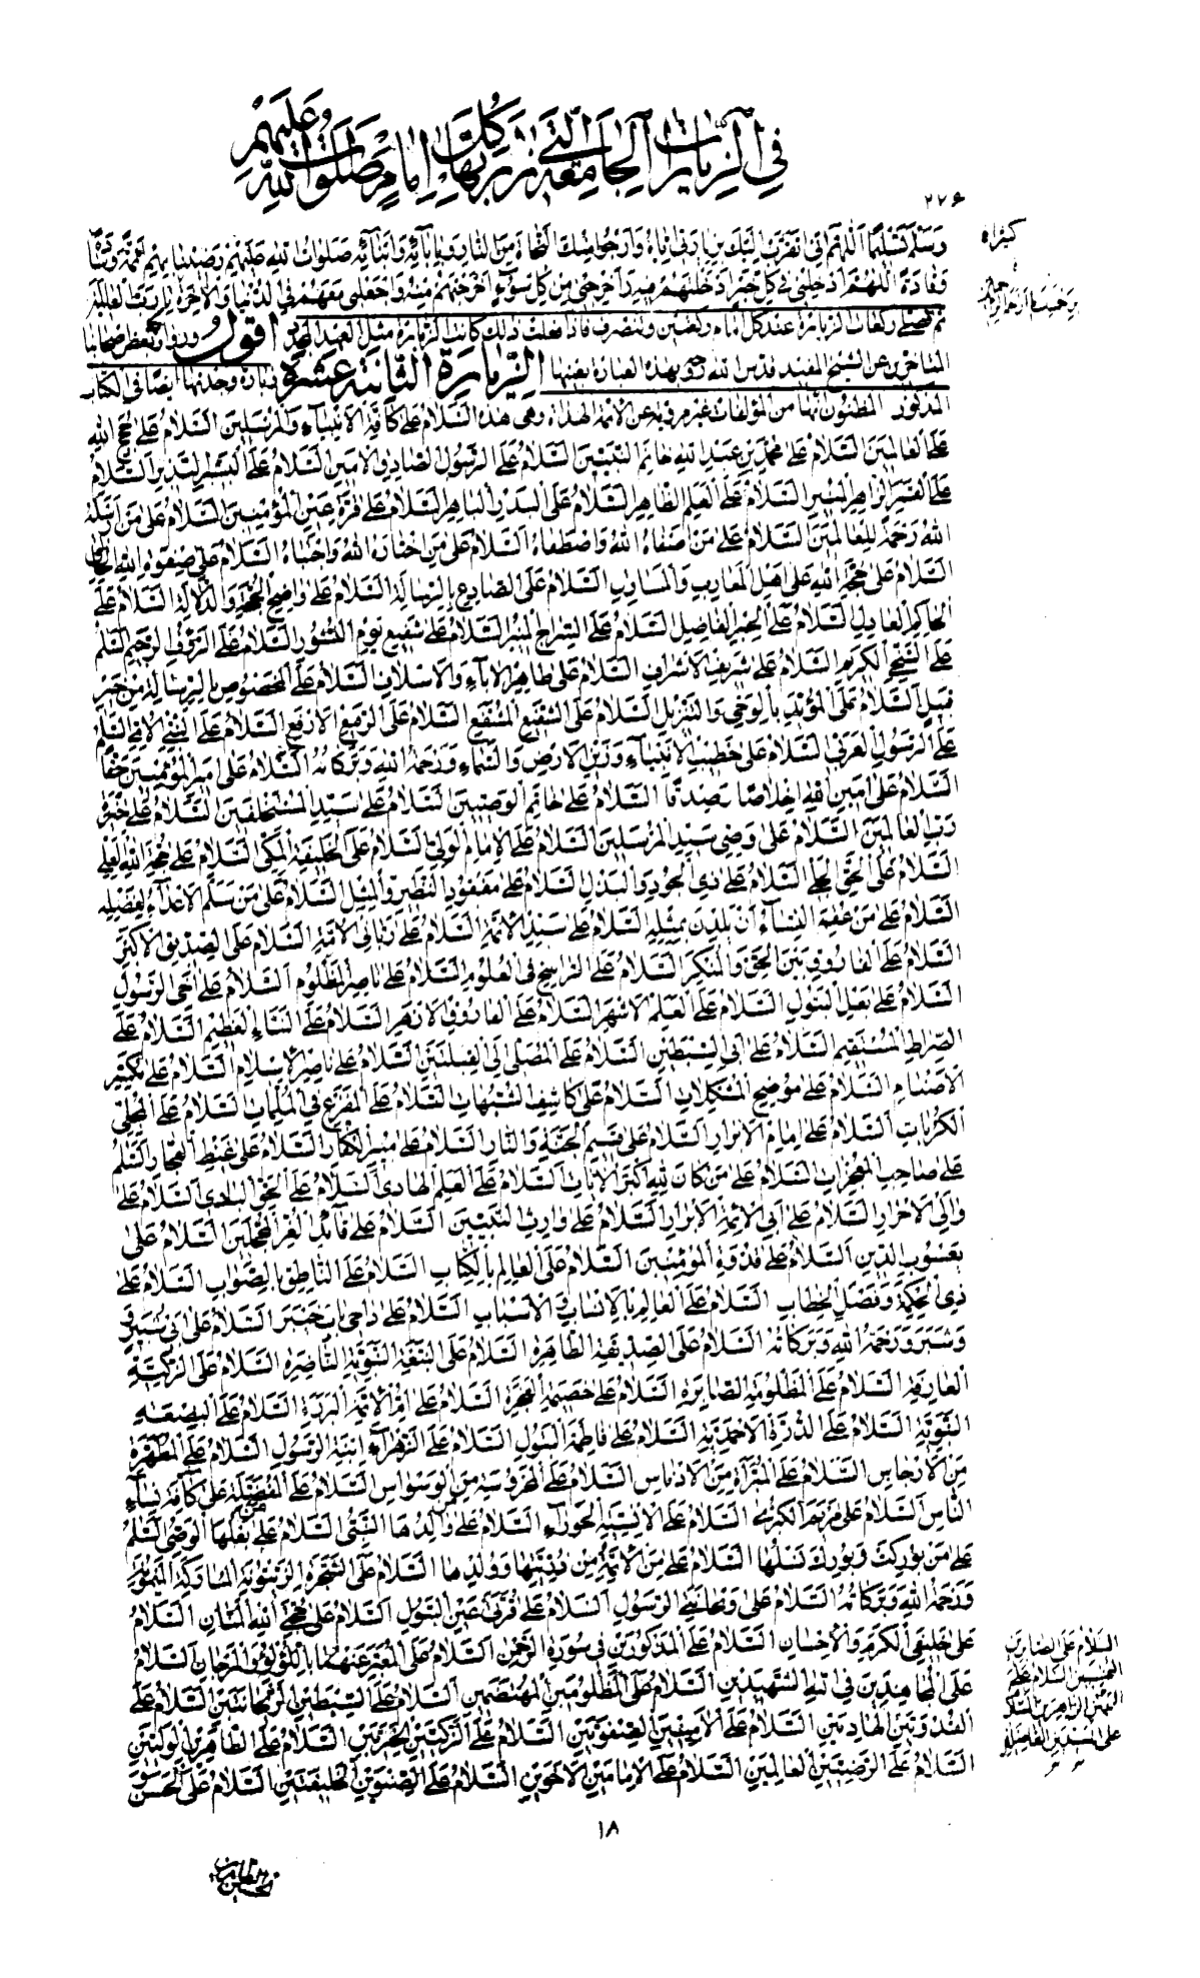 في الزيارات الجامعة التي يزار بها كل إمام صلوات الله عليهم
٢٧٦
وسلم تسليما اللهم إني أتقرب إليك بزيارتي إياه وأرجو منك النجاة من النار وبآبائه وأبنائه صلوات الله عليهم رضينا بهم أئمة وسادة
وقادة اللهم أدخلني في كل خير أدخلتهم فيه وأخرجني من كل سوء أخرجتهم منه واجعلني معهم في الدنيا والآخرة يا رب العالمين
ثم تصلي ركعات الزيارة عند كل إمام ركعتين وتنصرف فإذا فعلت ذلك كانت الزيارة مثل العهد أقول وروى بعض أصحابنا
المتأخرين عن الشيخ المفيد قدس الله روحه بهذه العبارة بعينها الزيارة الثانية عشرة زيارة وجدتها أيضا في الكتاب
المذكور المظنون أنها من المؤلفات غير مروية عن الأئمة الهداة وهي هذه السلام على كافة الأنبياء والمرسلين السلام على حجج الله
على العالمين السلام على محمد بن عبد الله خاتم النبيين السلام على الرسول الصادق الأمين السلام على البشير النذير السلام
على القمر الزاهر المنير السلام على العلم الظاهر السلام على البدر الباهر السلام على قرة عين المؤمنين السلام على من أرسله
الله رحمة للعالمين السلام على من صفاه الله واصطفاه السلام على من اختاره الله واجتباه السلام على صفوة الله
السلام على حجة الله على أهل المغارب والمشارق السلام على الصادع بالرسالة السلام على واضح الحجة والدلالة السلام على
الحاكم العادل السلام على الحبر الفاضل السلام على السراج المنير السلام على شفيع يوم النشور السلام على الرؤف الرحيم السلم
على السخي الكريم السلام على شريف الأشراف السلام على طاهر الآباء والأسلاف السلام على المخصوص بالرسالة من خير
قبيل السلام على المؤيد بالوحي والتنزيل السلام على الشفيع المشفع السلام على الرفيع الأرفع السلام على السلم
على الرسول العربي السلام على خطيب الأنبياء وزين الأرض والسماء ورحمة الله وبركاته السلام على أمير المؤمنين حقا
السلام على أمين الله إخلاصا وصدقا السلام على خاتم الوصيين السلام على سيد المستخلفين السلام على
رب العالمين السلام على وصي سيد المرسلين السلام على الإمام الولي السلام على الخليفة المكي السلام على حجة الله العلي
السلام على السلام على ذي الجود والبذل السلام على مفقود النظير والمثل السلام على من سلم الأعداء لفضله
السلام على من عقم النساء أن يلدن بمثله السلام على سيد الأئمة السلام على رباني الأمة السلام على الصديق الأكبر
السلام على الفاروق بين الحق والمنكر السلام على الراسخ في العلوم السلام على ناصر المظلوم السلام على أخي الرسول
السلام على بعل البتول السلام على العلم الأشهر السلام على الفاروق الأزهر السلام على النبأ العظيم السلام على
الصراط المستقيم السلام على أبي السبطين السلام على المصلي إلى القبلتين السلام على ناصر الإسلام السلام على مكسر
الأصنام السلام على موضح المشكلات السلام على كاشف الشبهات السلام على المفزع في الملمات السلام على المجلي
الكربات السلام على إمام الأبرار السلام على قسيم الجنة والنار السلام على مبير الكفار السلام على غيظ الفجار السلم
على صاحب المعجزات السلام على من كان لله أكبر الآيات السلام على العلم الهادي السلام على الحق البادي السلام على
والي الأحرار السلام على أبي الأئمة الأبرار السلام على وارث النبيين السلام على قائد الغر المحجلين السلام على
يعسوب الدين السلام على قدوة المؤمنين السلام على العالم بالكتاب السلام على الناطق بالصواب السلام على
ذي الحكمة وفصل الخطاب السلام على العالم بالأنساب والأسباب السلام على داحي باب خيبر السلام على أبي شبير
وشبر ورحمة الله وبركاته السلام على الصديقة الطاهرة السلام على البقعة النبوية الناضرة السلام على الزكية
العارفة السلام على المظلومة الصابرة السلام على خصيمة الفجرة السلام على أم الأئمة البررة السلام على البضعة
النبوية السلام على الدرة الأحمدية السلام على فاطمة البتول السلام على الزهراء ابنة الرسول السلام على المطهرة
من الأرجاس السلام على المبرأة من الأدناس السلام على المحروسة من الوسواس السلام على المفضلة على كافة نساء
الناس السلام على مريم الكبرى السلام على الإنسية الحوراء السلام على والدها النبي السلام على بعلها الوصي السلم
على من بوركت وبورك نسلها السلام على من الأئمة من ذريتها وولدها السلام على الشجرة الزيتونة المباركة الميمونة
ورحمة الله وبركاته السلام على ريحانتي الرسول السلام على قرتي عين البتول السلام على حجج الله السلام
على خليفي الكرم والإحسان السلام على المذكورين في سورة الرحمن السلام على المعبر عنهما باللؤلؤ والمرجان السلام
على المجاهدين في الله الشهيدين السلام على المظلومين المهتضمين السلام على السبطين الريحانتين السلام على
القدوتين الهاديين السلام على الأمينين الصفوتين السلام على الزكيتين الخيرتين السلام على الطاهرين الوليين
السلام على الرضيين العالمين السلام على الإمامين الأخوين السلام على الصنوين الخليفتين السلام على الحسن
كثيرا
برحمتك يا أرحم الراحمين
السلام على الصابرين
السلام على
السلام
على السيدين الفاضلين
١٨